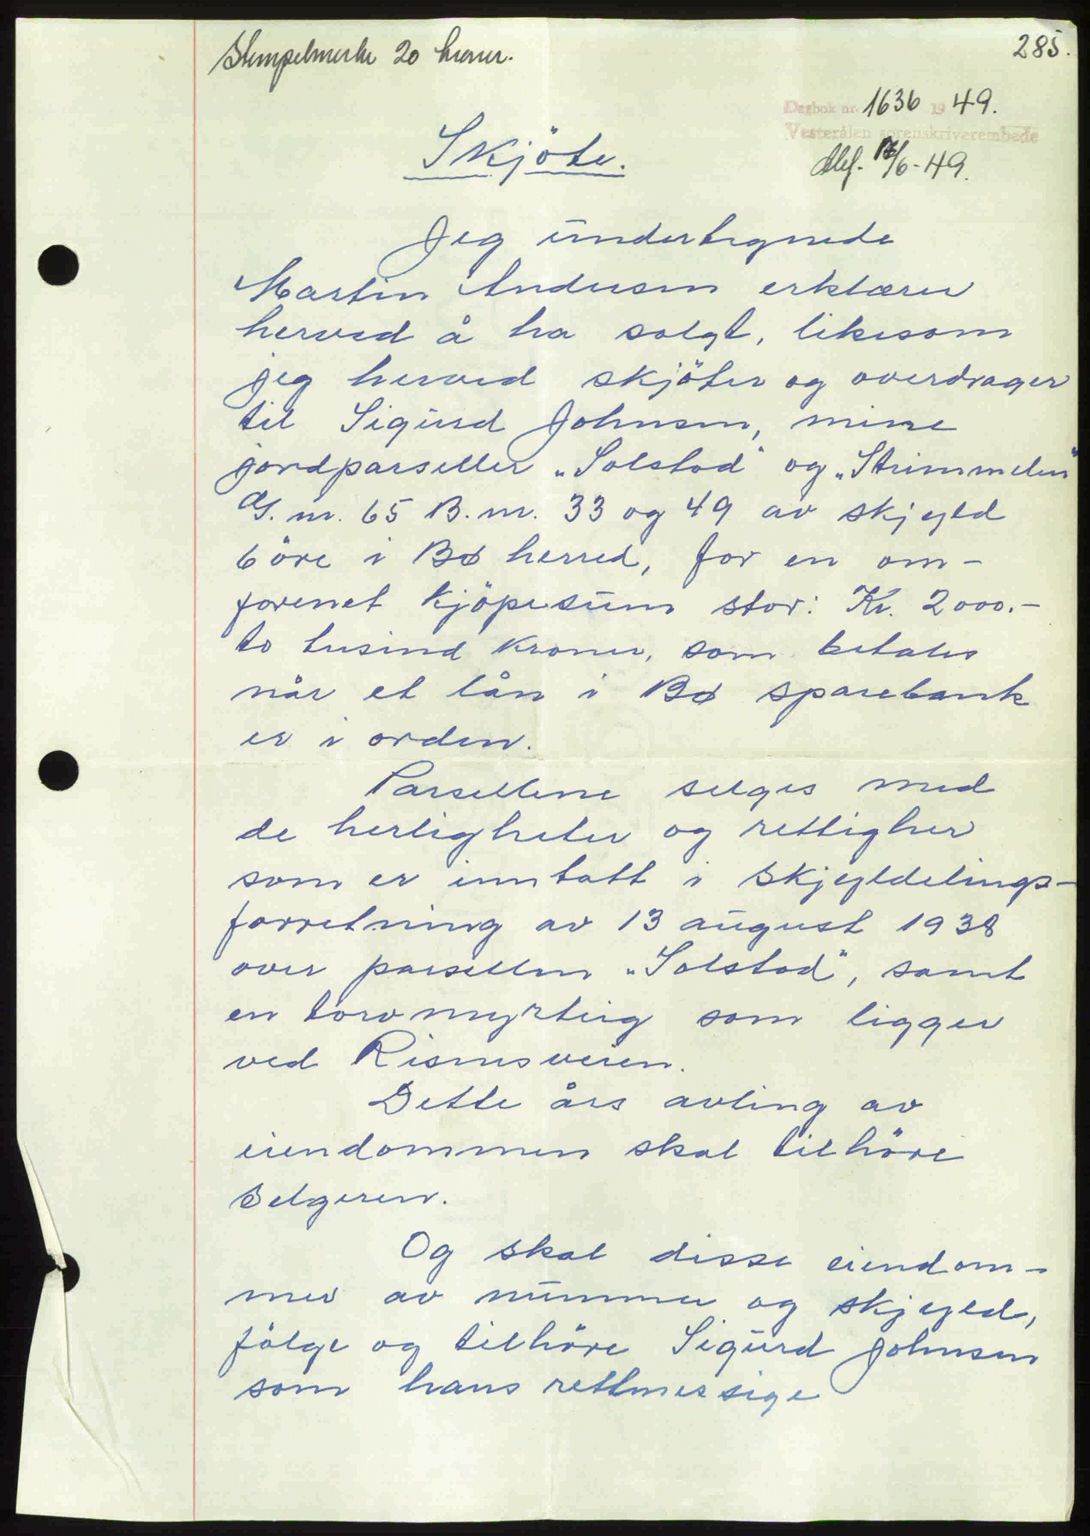 Stempelmerke 20 kroner.
285.
Dagbok nr. 1636 1949.
Vesterålen sorenskriverembede
17/6-49.
Skjöte.
Jeg undertegnede
Martin Andersen erklærer
herved å ha solgt, likesom
jeg herved skjöter og overdrager
til Sigurd Johnsen, mine
jordparseller „Solstad" og „Strimmelen"
G.nr. 65 B.nr. 33 og 49 av skjeyld
6 öre i Bø herred, for en om-
forenet kjöpesum stor: Kr. 2000.-
to tusind kroner, som betales
når et lån i Bø sparebank
er i orden.
Parsellene selges med
de herligheter og rettigher
som er inntatt i skjeyldelings-
forretning av 13 august 1938
over parsellen „Solstad", samt
en torvmyrteig som ligger
ved Risnesveien.
Dette års avling av
eiendommen skal tilhöre
selgeren.
Og skal disse eiendom-
mer av nummer og skjeyld,
fölge og tilhöre Sigurd Johnsen
som hans rettmessige